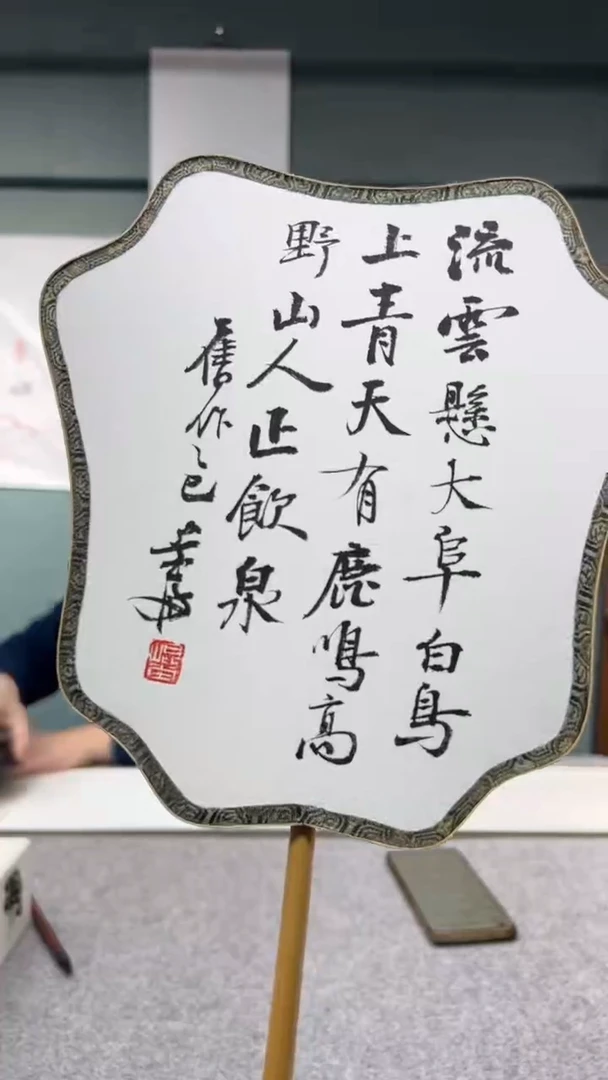 流雲懸大阜白鳥
上青天有鹿鳴高
野山人正飲泉
舊作之